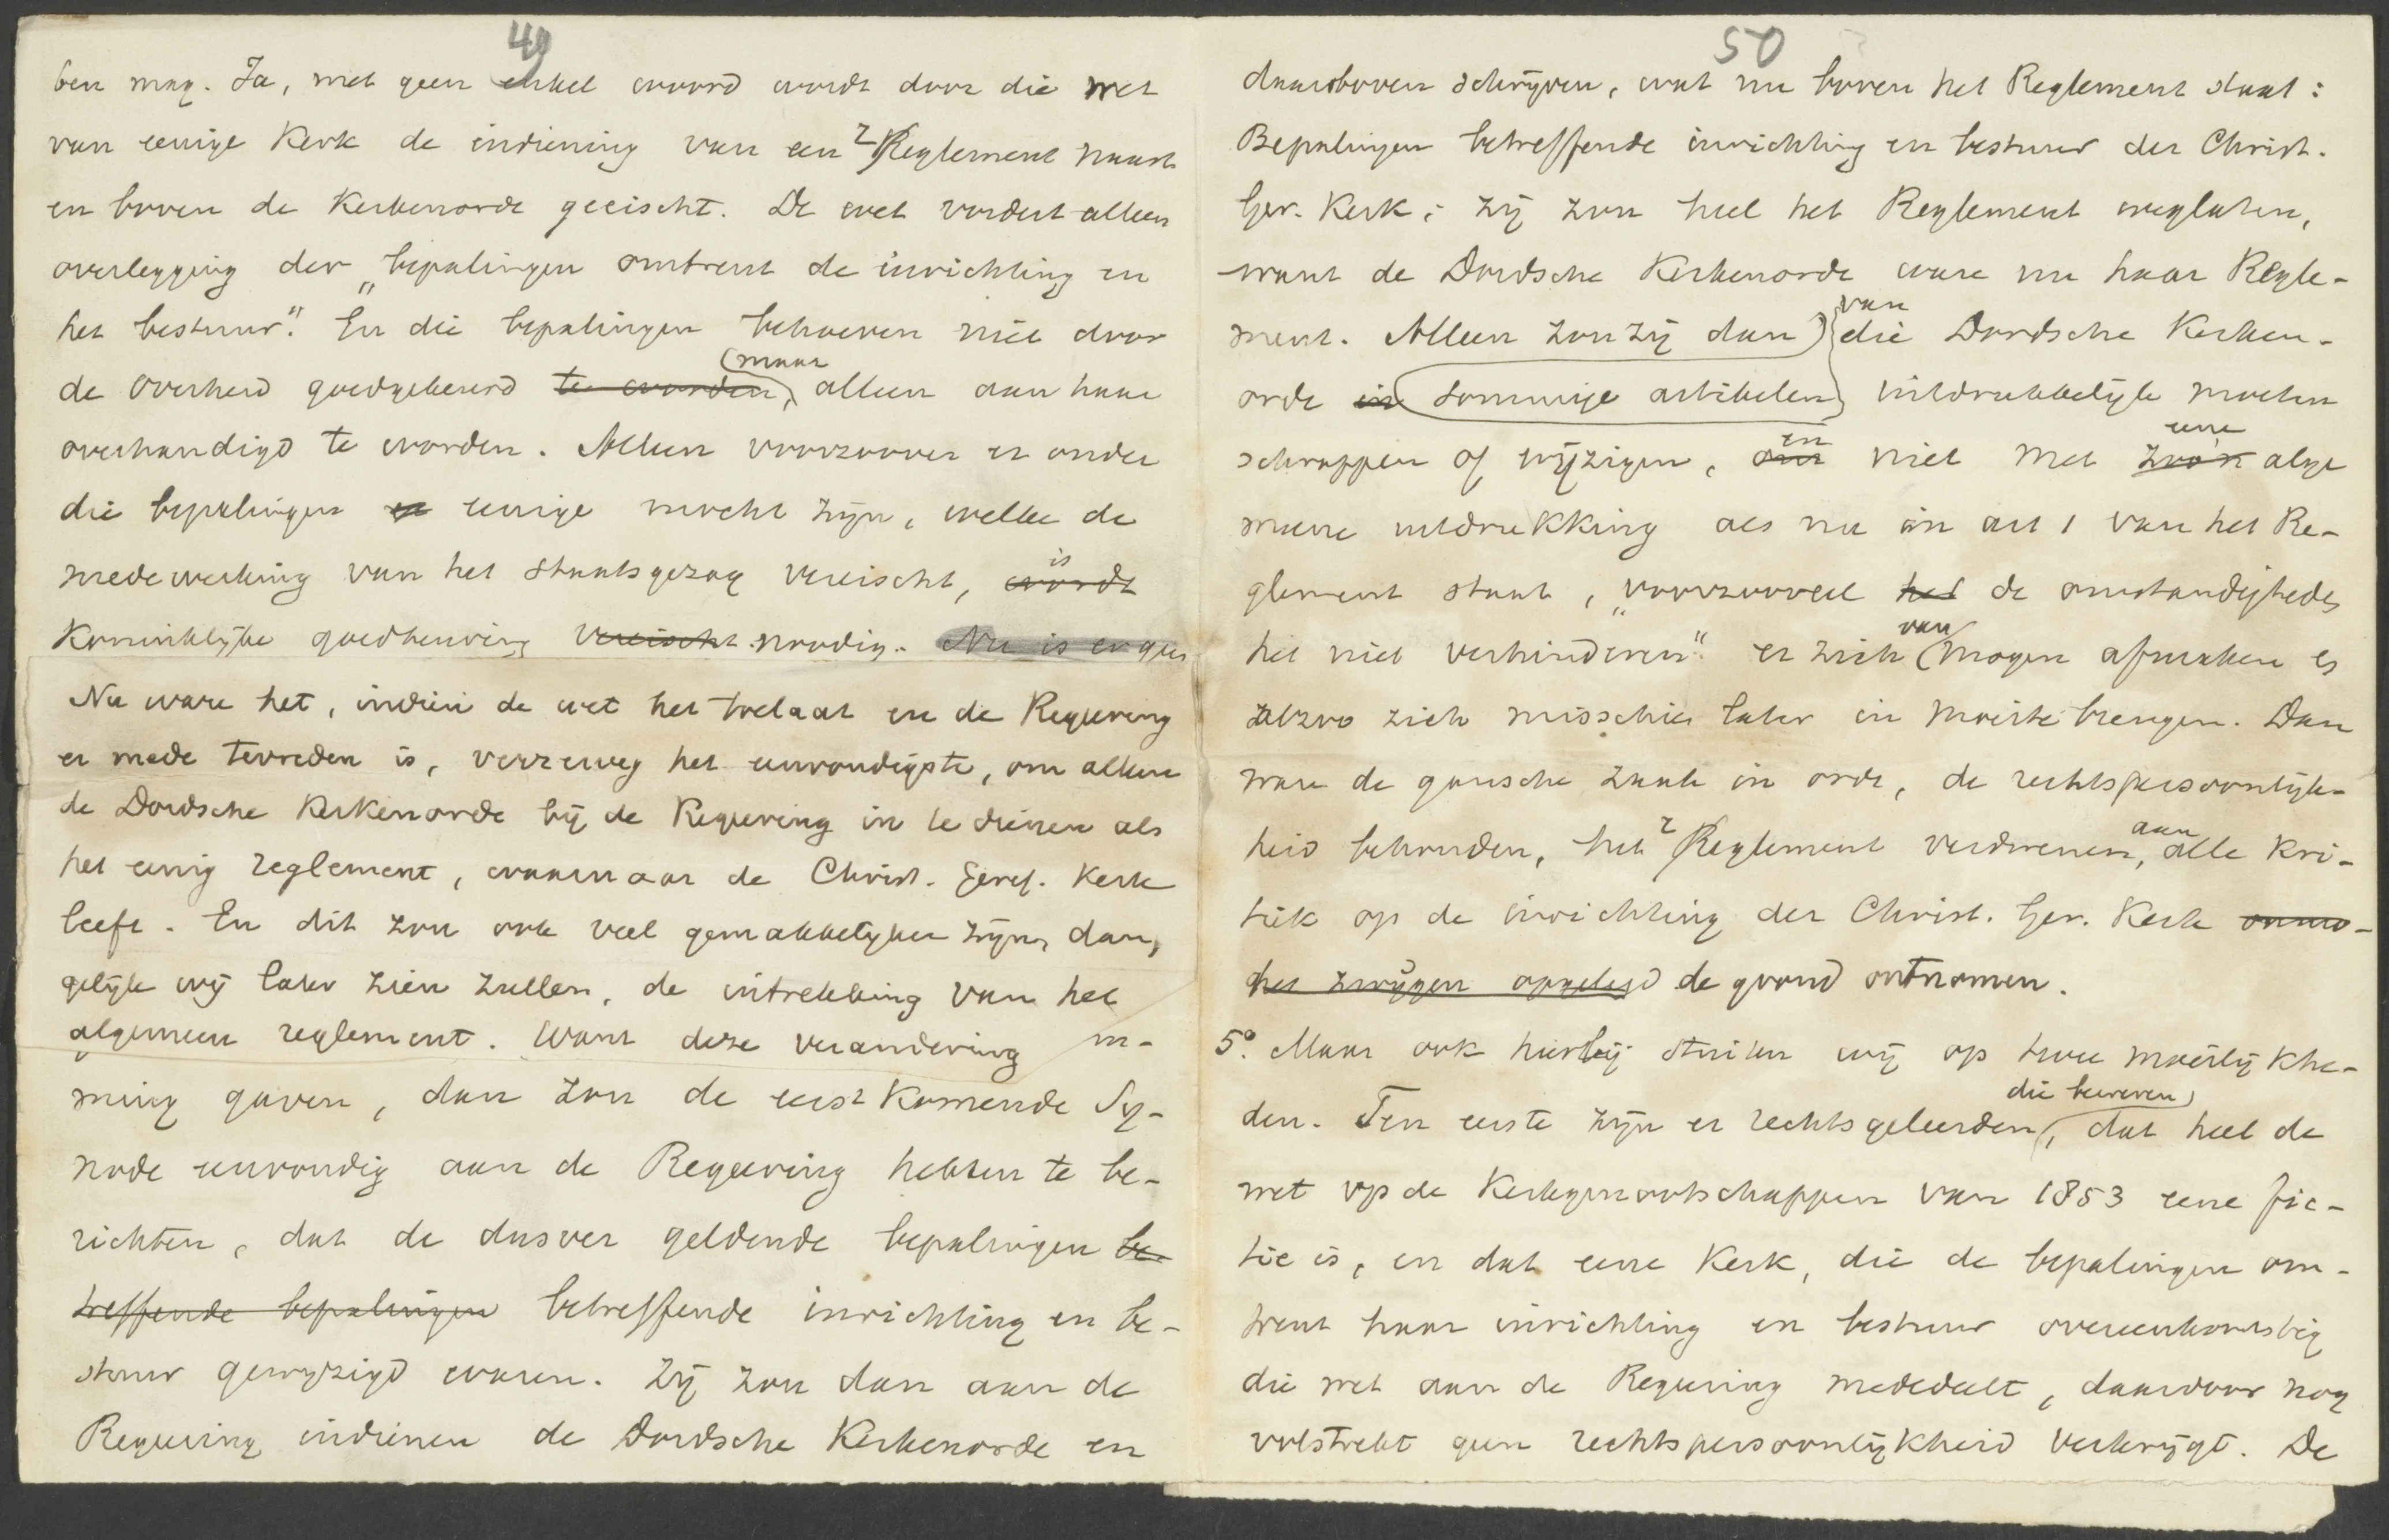 49
ben mag. Ja, met geen enkel woord wordt door die wet
van eenige Kerk de indiening van een Reglement naast
en boven de Kerkenorde geëischt. De wet vordert alleen
overlegging der „bepalingen omtrent de inrichting en
het bestuur". En die bepalingen behoeven niet door
de Overheid goedgekeurd te worden, maar alleen aan haar
overhandigd te worden. Alleen voorzoover er onder
die bepalingen er eenige mocht zijn, welke de
medewerking van het staatsgezag vereischt, wordt is
Koninklijke goedkeuring vereischt noodig. Nu is er geen
Nu ware het, indien de wet het toelaat en de Regeering
er mede tevreden is, verreweg het eenvoudigste, om alleen
de Dordsche Kerkenorde bij de Regeering in te dienen als
het eenig reglement, waarnaar de Christ. Geref. Kerk
leeft. En dit zou ook veel gemakkelijker zijn, dan,
gelijk wij later zien zullen, de intrekking van het
algemeen reglement. Want deze verandering in-
ming gaven, dan zou de eerstkomende Sy-
node eenvoudig aan de Regeering hebben te be-
richten, dat de dusver geldende bepalingen be-
treffende bepalingen betreffende inrichting en be-
stuur gewijzigd waren. Zij zou dan aan de
Regeering indienen de Dordsche Kerkenorde en
50
daarboven schrijven, wat nu boven het Reglement staat:
Bepalingen betreffende inrichting en bestuur der Christ.
Ger. Kerk; zij zou heel het Reglement weglaten,
want de Dordsche Kerkenorde ware nu haar Regle-
ment. Alleen zou zij dan van die Dordsche Kerken-
orde in sommige artikelen uitdrukkelijk moeten
schrappen of wijzigen, om en niet met zoo'n eene alge
meene uitdrukking als nu in art 1 van het Re-
glement staat, „voorzooveel het de omstandigheden
het niet verhinderen" er zich van mogen afmaken en
alzoo zich misschien later in moeite brengen. Dan
ware de gansche zaak in orde, de rechtspersoonlijk-
heid behouden, het Reglement verdwenen, aan alle kri-
tiek op de inrichting der Christ. Ger. Kerk onmo-
het zwijgen opgelegd de grond ontnomen.
5º. Maar ook hierbij stuiten wij op twee moeilijkhe-
den. Ten eerste zijn er rechtsgeleerden, die beweren dat heel de
wet op de Kerkgenootschappen van 1853 eene fic-
tie is, en dat eene Kerk, die de bepalingen om-
trent haar inrichting en bestuur overeenkomstig
die wet aan de Regeering mededeelt, daardoor nog
volstrekt geen rechtspersoonlijkheid verkrijgt. De